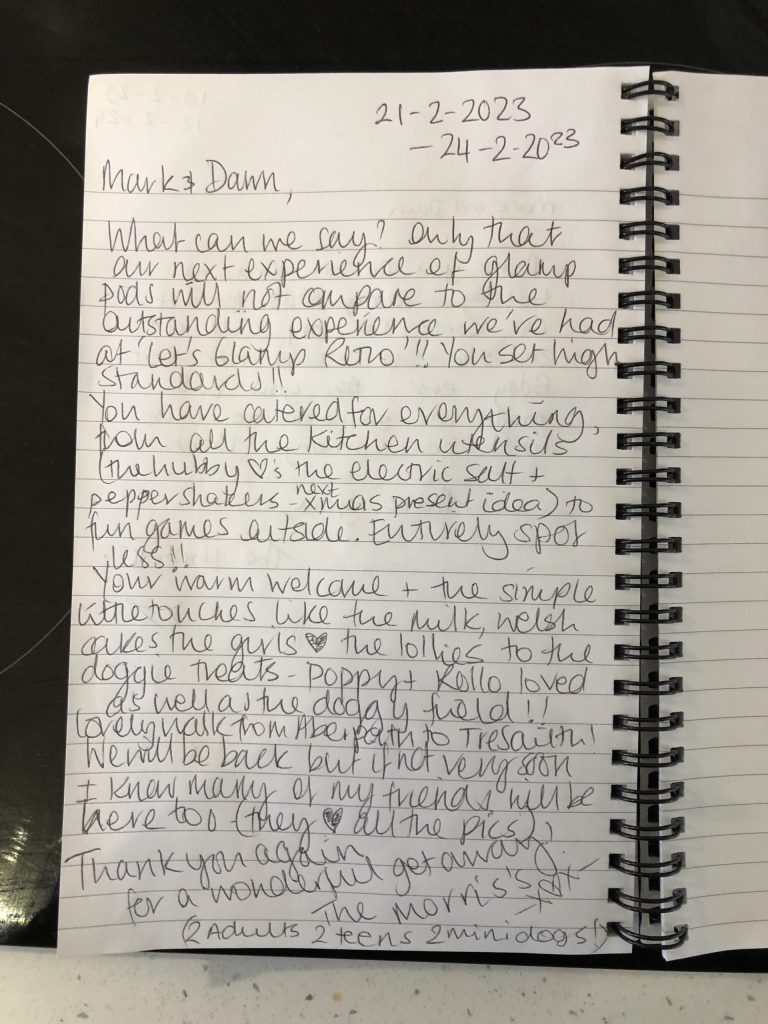 21-2-2023
- 24-2-2023
Mark & Dawn,
What can we say? Only that
our next experience of glamp
pods will not compare to the
outstanding experience we've had
at 'Let's Glamp Retro'!! You set high
standards!!
You have catered for everything,
from all the kitchen utensils
(the hubby ♡'s the electric salt +
pepper shakers - next xmas present idea) to
fun games outside. Entirely spot
less!!
Your warm welcome + the simple
little touches like the milk, welsh
cakes the girls ♥ the lollies to the
doggie treats - Poppy + Rollo loved
as well as the doggy field!!
Lovely walk from Aberpath to Tresaith!
We will be back but if not very soon
I know many of my friends will be
here too (they ♥ all the pics)!
Thank you again
for a wonderful get away.
The Morris's
(2 Adults 2 teens 2 mini dogs!)